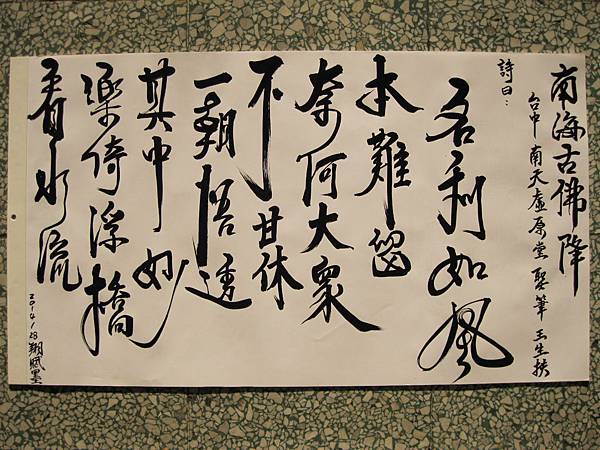 南海古佛降
台中 南天虛原堂 聖筆 玉生扶
詩曰：
名利如風
本難留
奈何大眾
不甘休
一朝悟透
其中妙
樂倚浮橋
看水流
2014/1/28翔賦墨